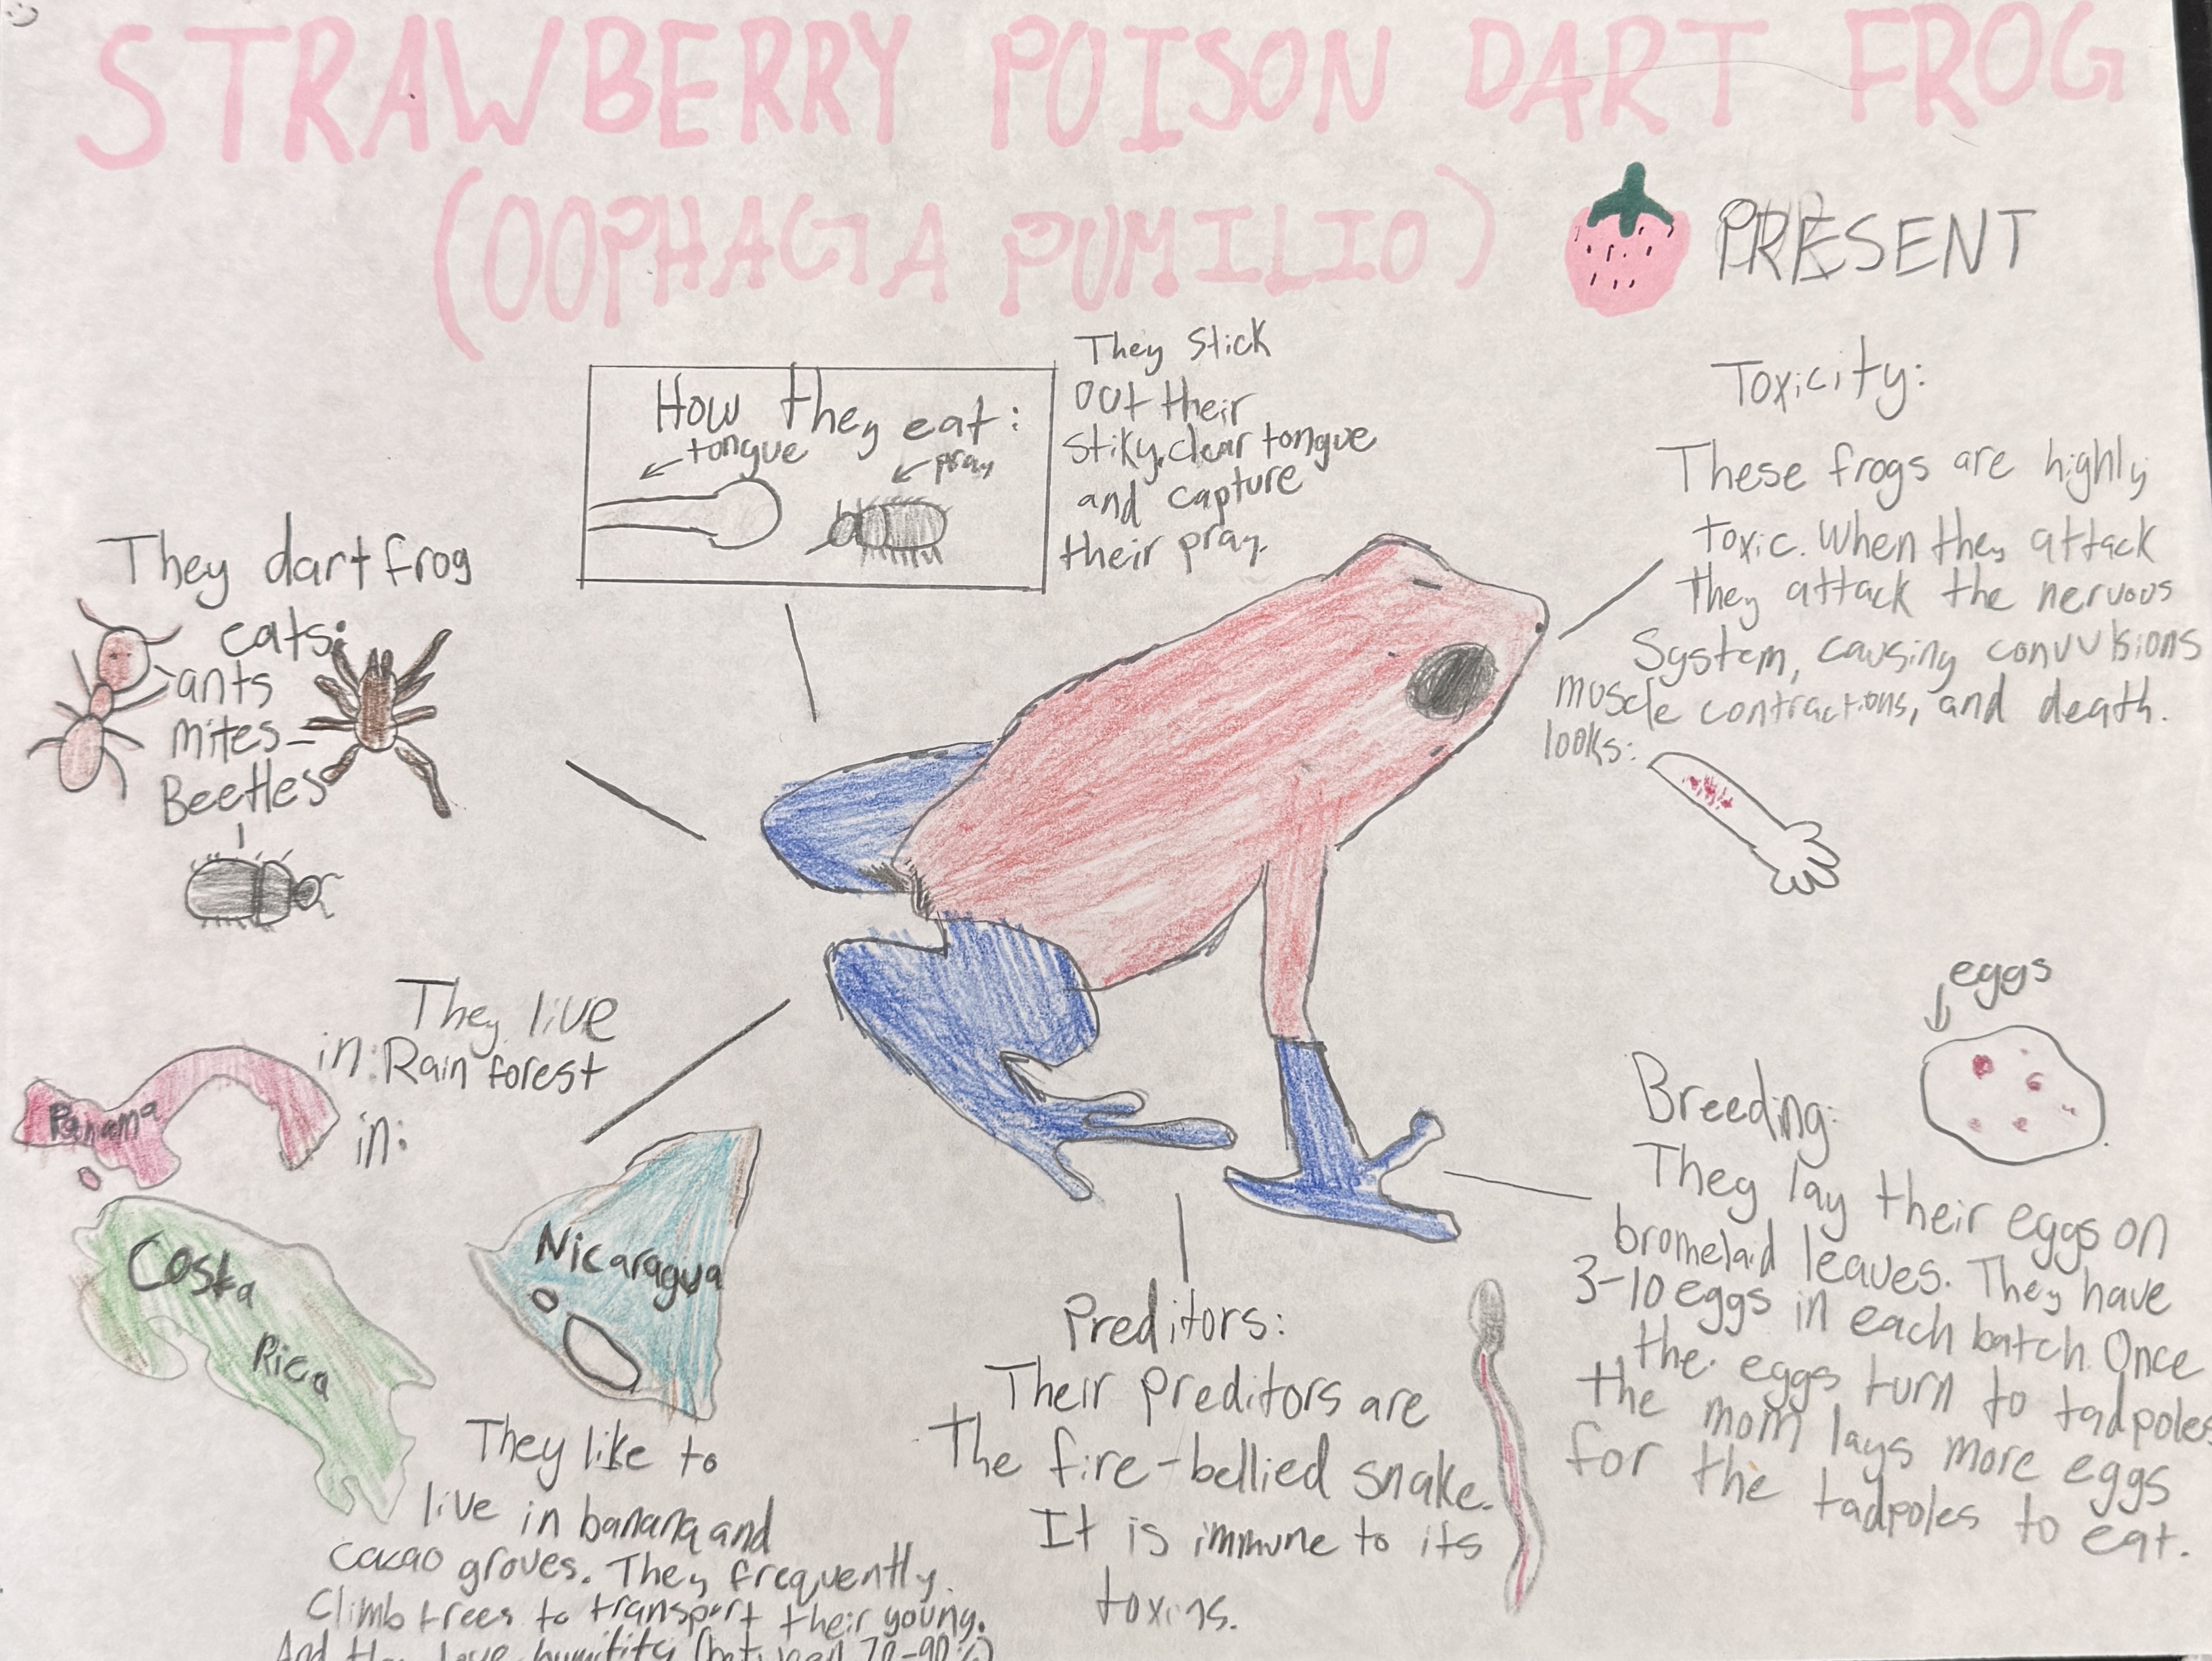 STRAWBERRY POISON DART FROG
(OOPHAGIA PUMILIO)
PRESENT
How they eat:
tongue
pray
They stick
out their
stiky, clear tongue
and capture
their pray.
Toxicity:
These frogs are highly
toxic. When they attack
they attack the nervous
System, causing convulsions
muscle contractions, and death.
looks:
They dart frog
eats:
ants
mites-
Beetles
They live
in: Rain forest
in:
Panama
Costa
Rica
Nicaragua
They like to
live in banana and
cacao groves. They frequently
Climb trees to transport their young.
And they love humitity (between 70-90%)
Preditors:
Their preditors are
The fire-bellied snake.
It is immune to its
toxins.
eggs
Breeding:
They lay their eggs on
bromelaid leaves. They have
3-10 eggs in each batch. Once
the eggs turn to tadpoles
the mom lays more eggs
for the tadpoles to eat.